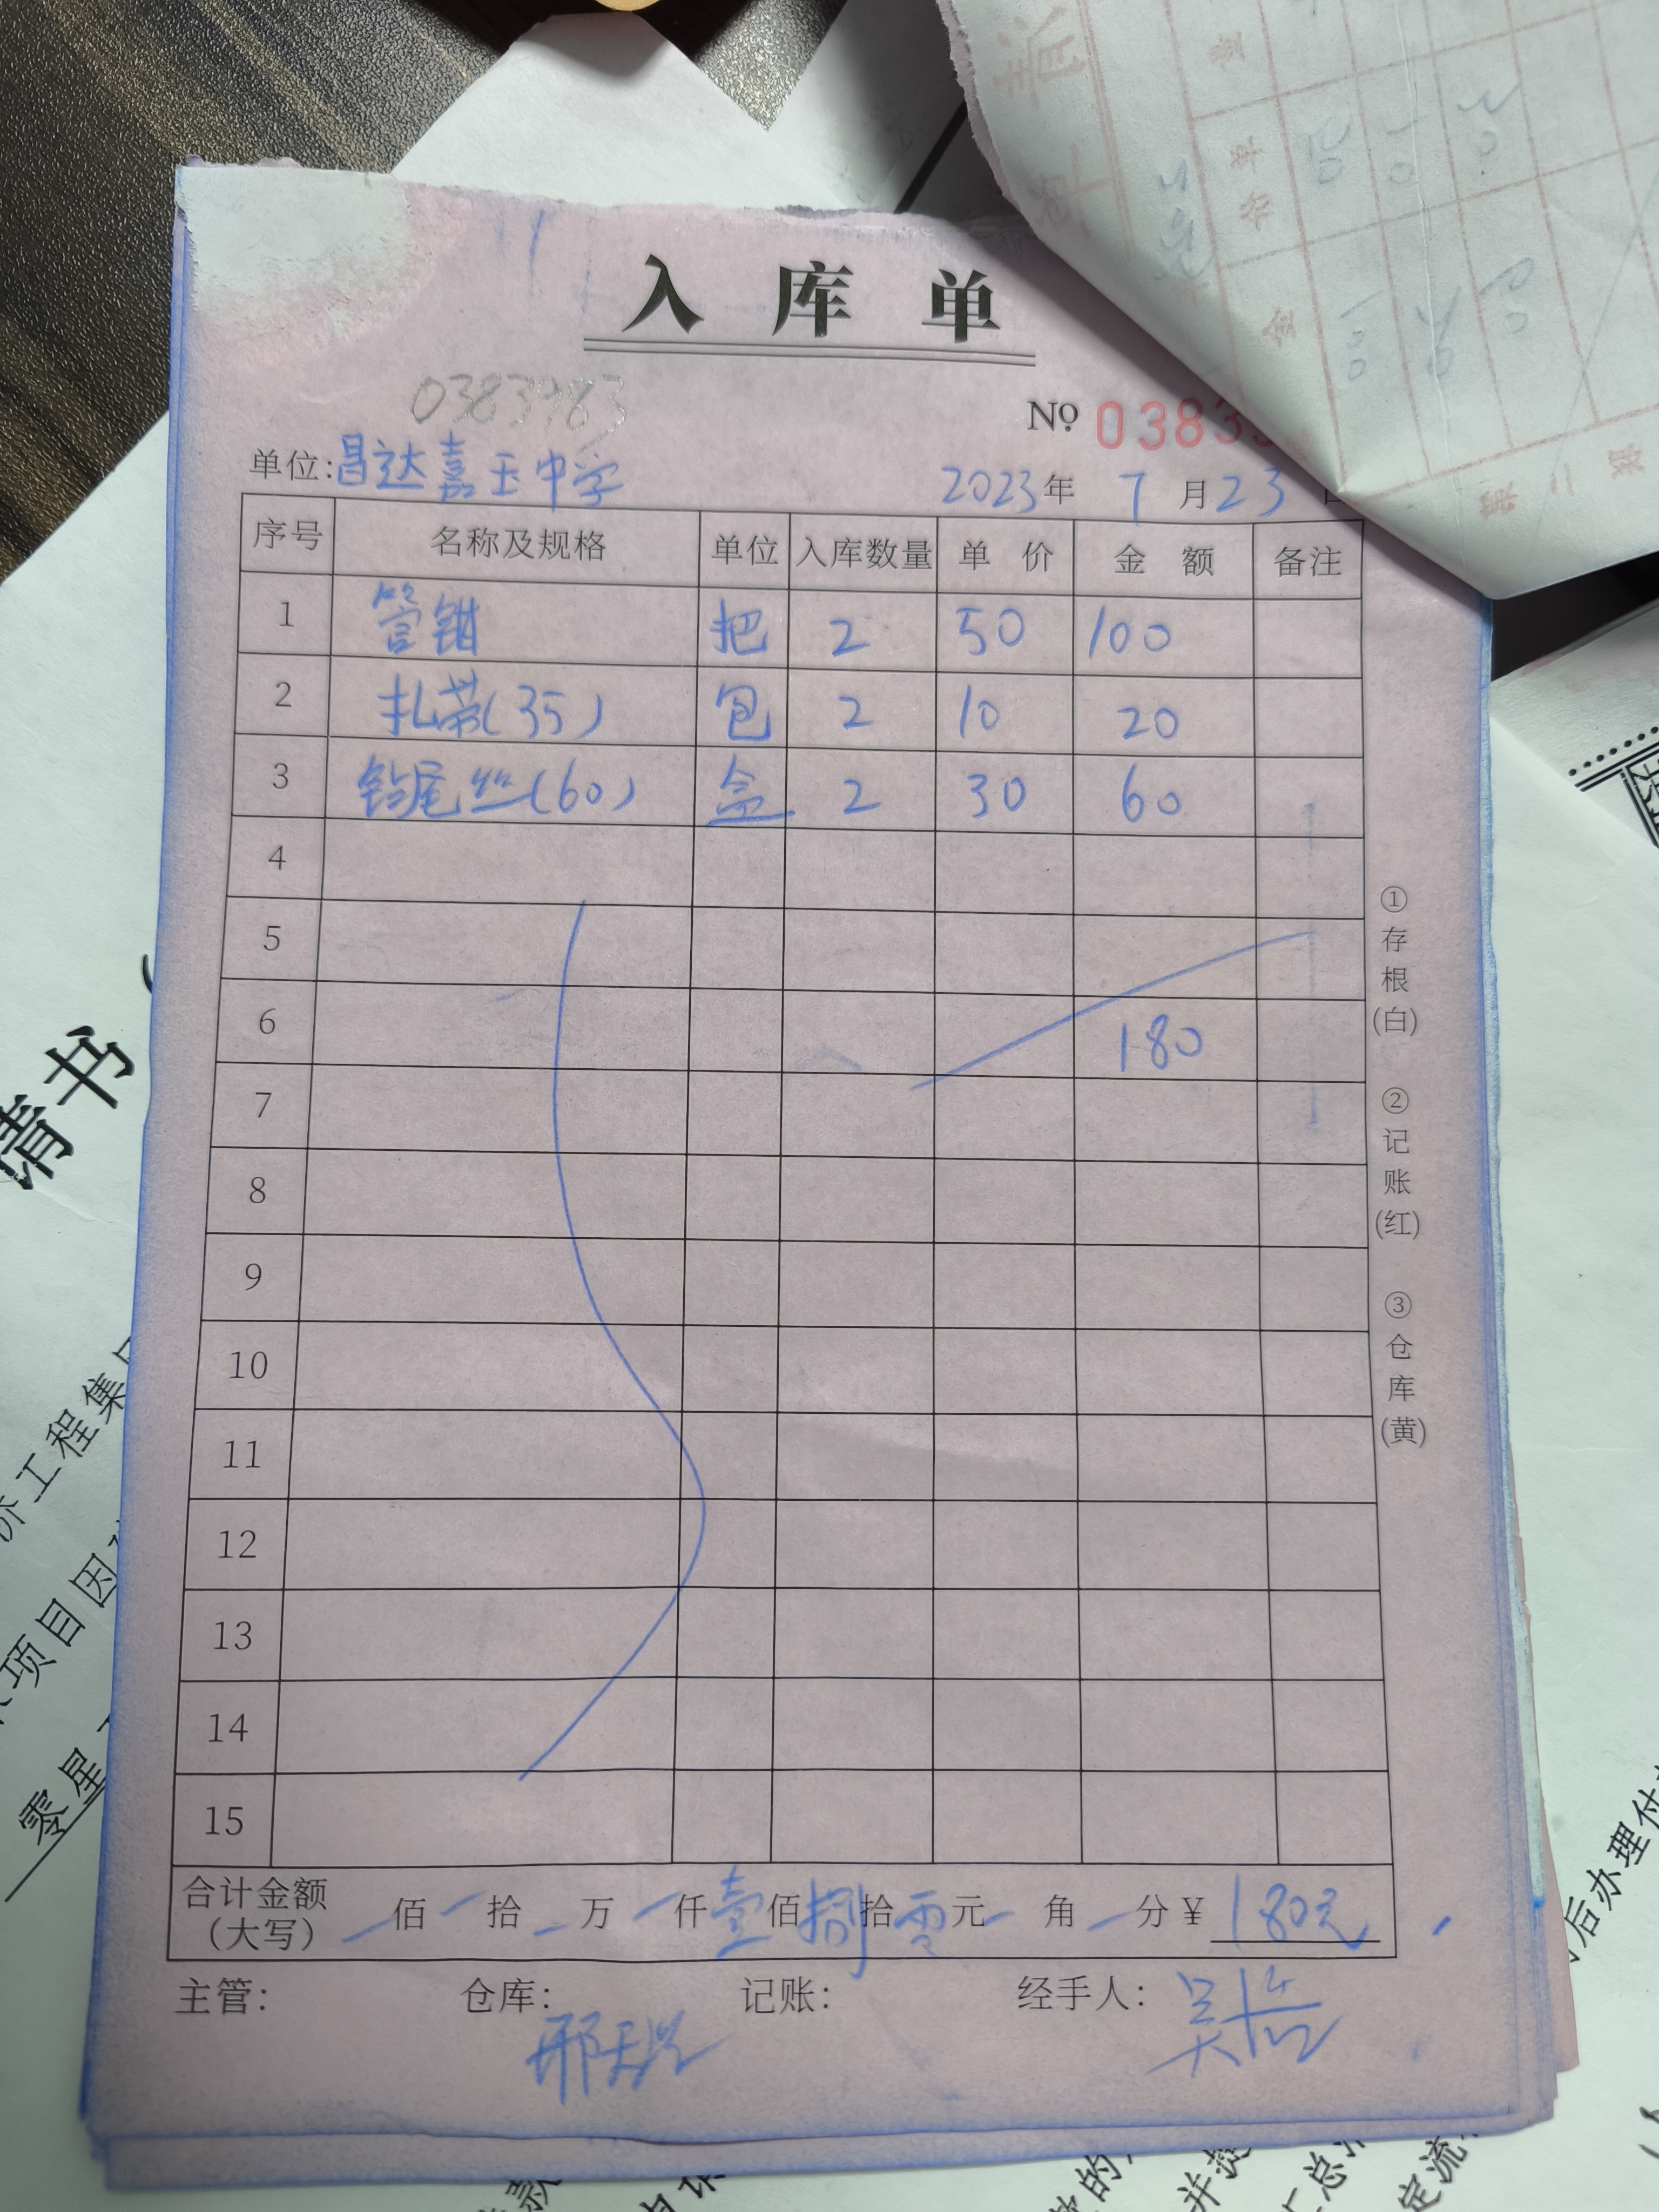 入库单
0383983
№ 0383
单位:昌达嘉玉中学 2023年7月23
序号 名称及规格 单位 入库数量 单价 金额 备注
1 管钳 把 2 50 100
2 扎带(35) 包 2 10 20
3 钻尾丝(60) 盒 2 30 60
4
5
6 180
7
8
9
10
11
12
13
14
15
合计金额(大写) 佰 拾 万 仟壹佰捌拾零元 角 分 ¥180元
主管: 仓库: 记账: 经手人:
①存根(白) ②记账(红) ③仓库(黄)
请书
价工程集
项目因
零星
后办理付